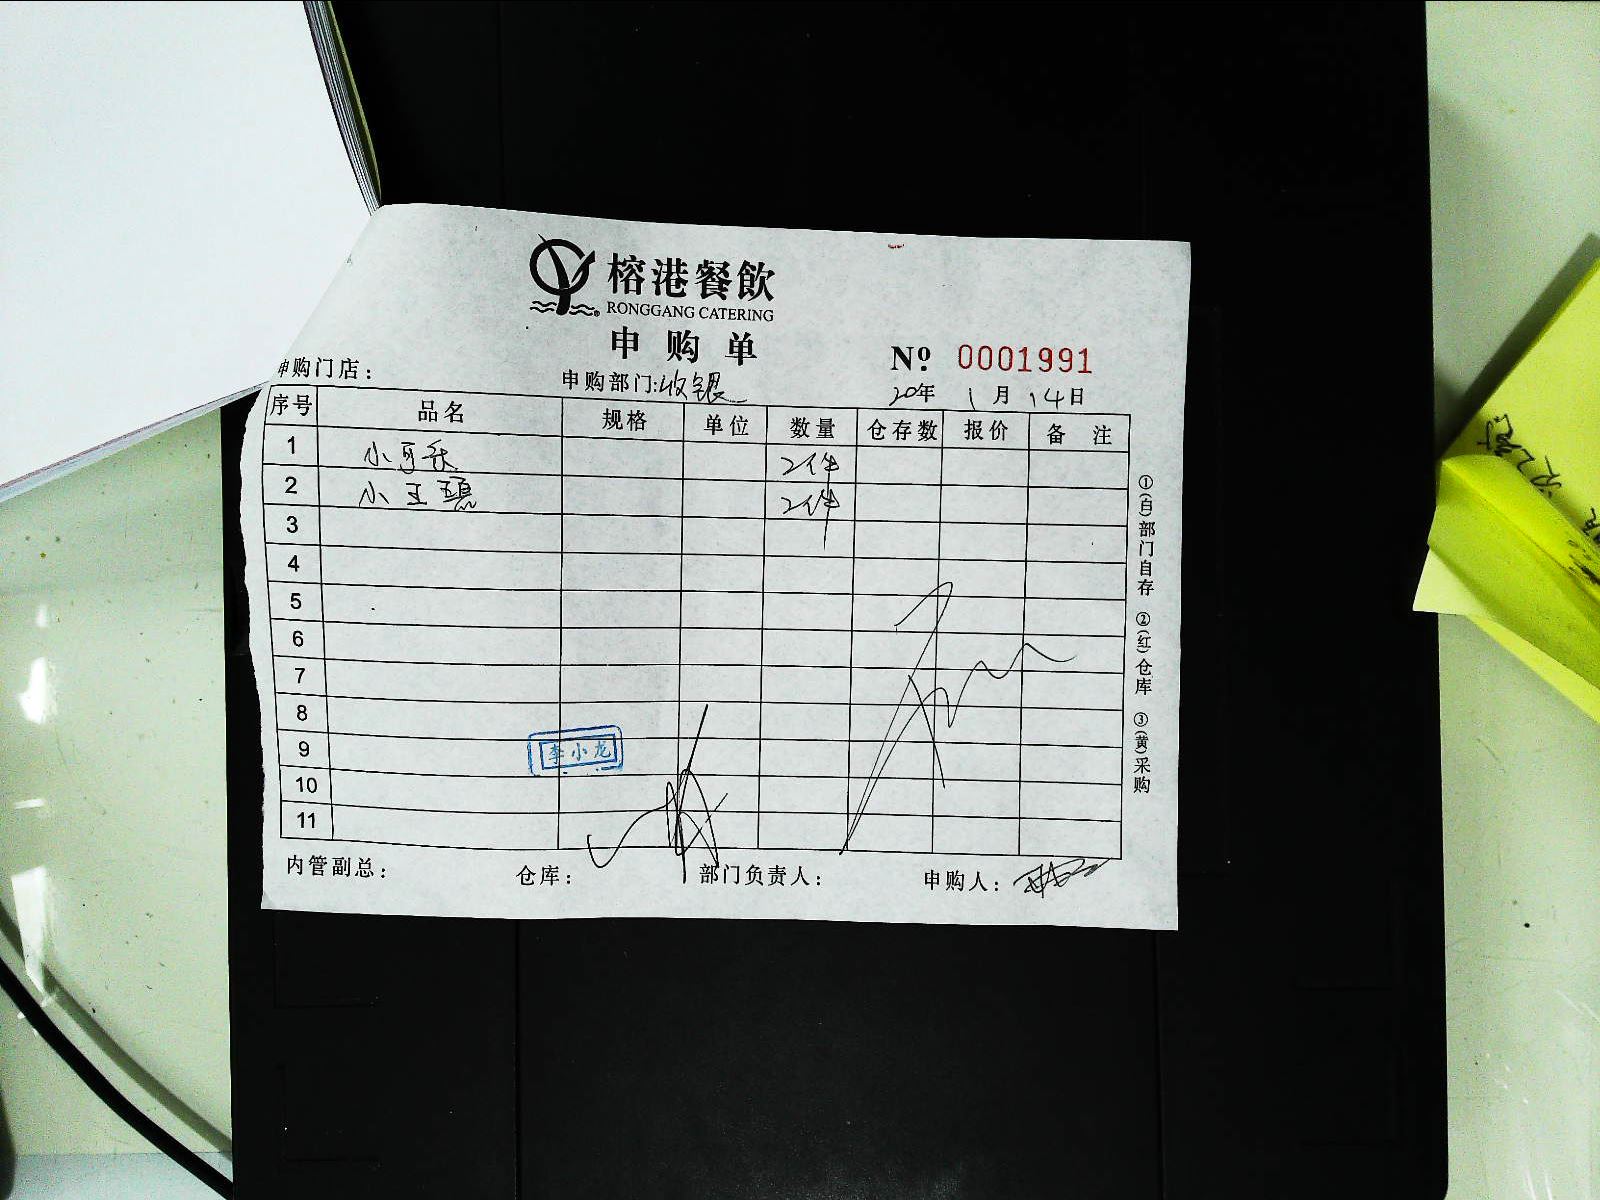 榕港餐飲
RONGGANG CATERING
申购单
Nº 0001991
申购门店： 申购部门:收银 20年 1月 14日
序号 品名 规格 单位 数量 仓存数 报价 备注
1 小 2件
2 小王 2件
3
4
5
6
7
8
9 李小龙
10
11
内管副总： 仓库： 部门负责人： 申购人：
①(白)部门自存 ②(红)仓库 ③(黄)采购